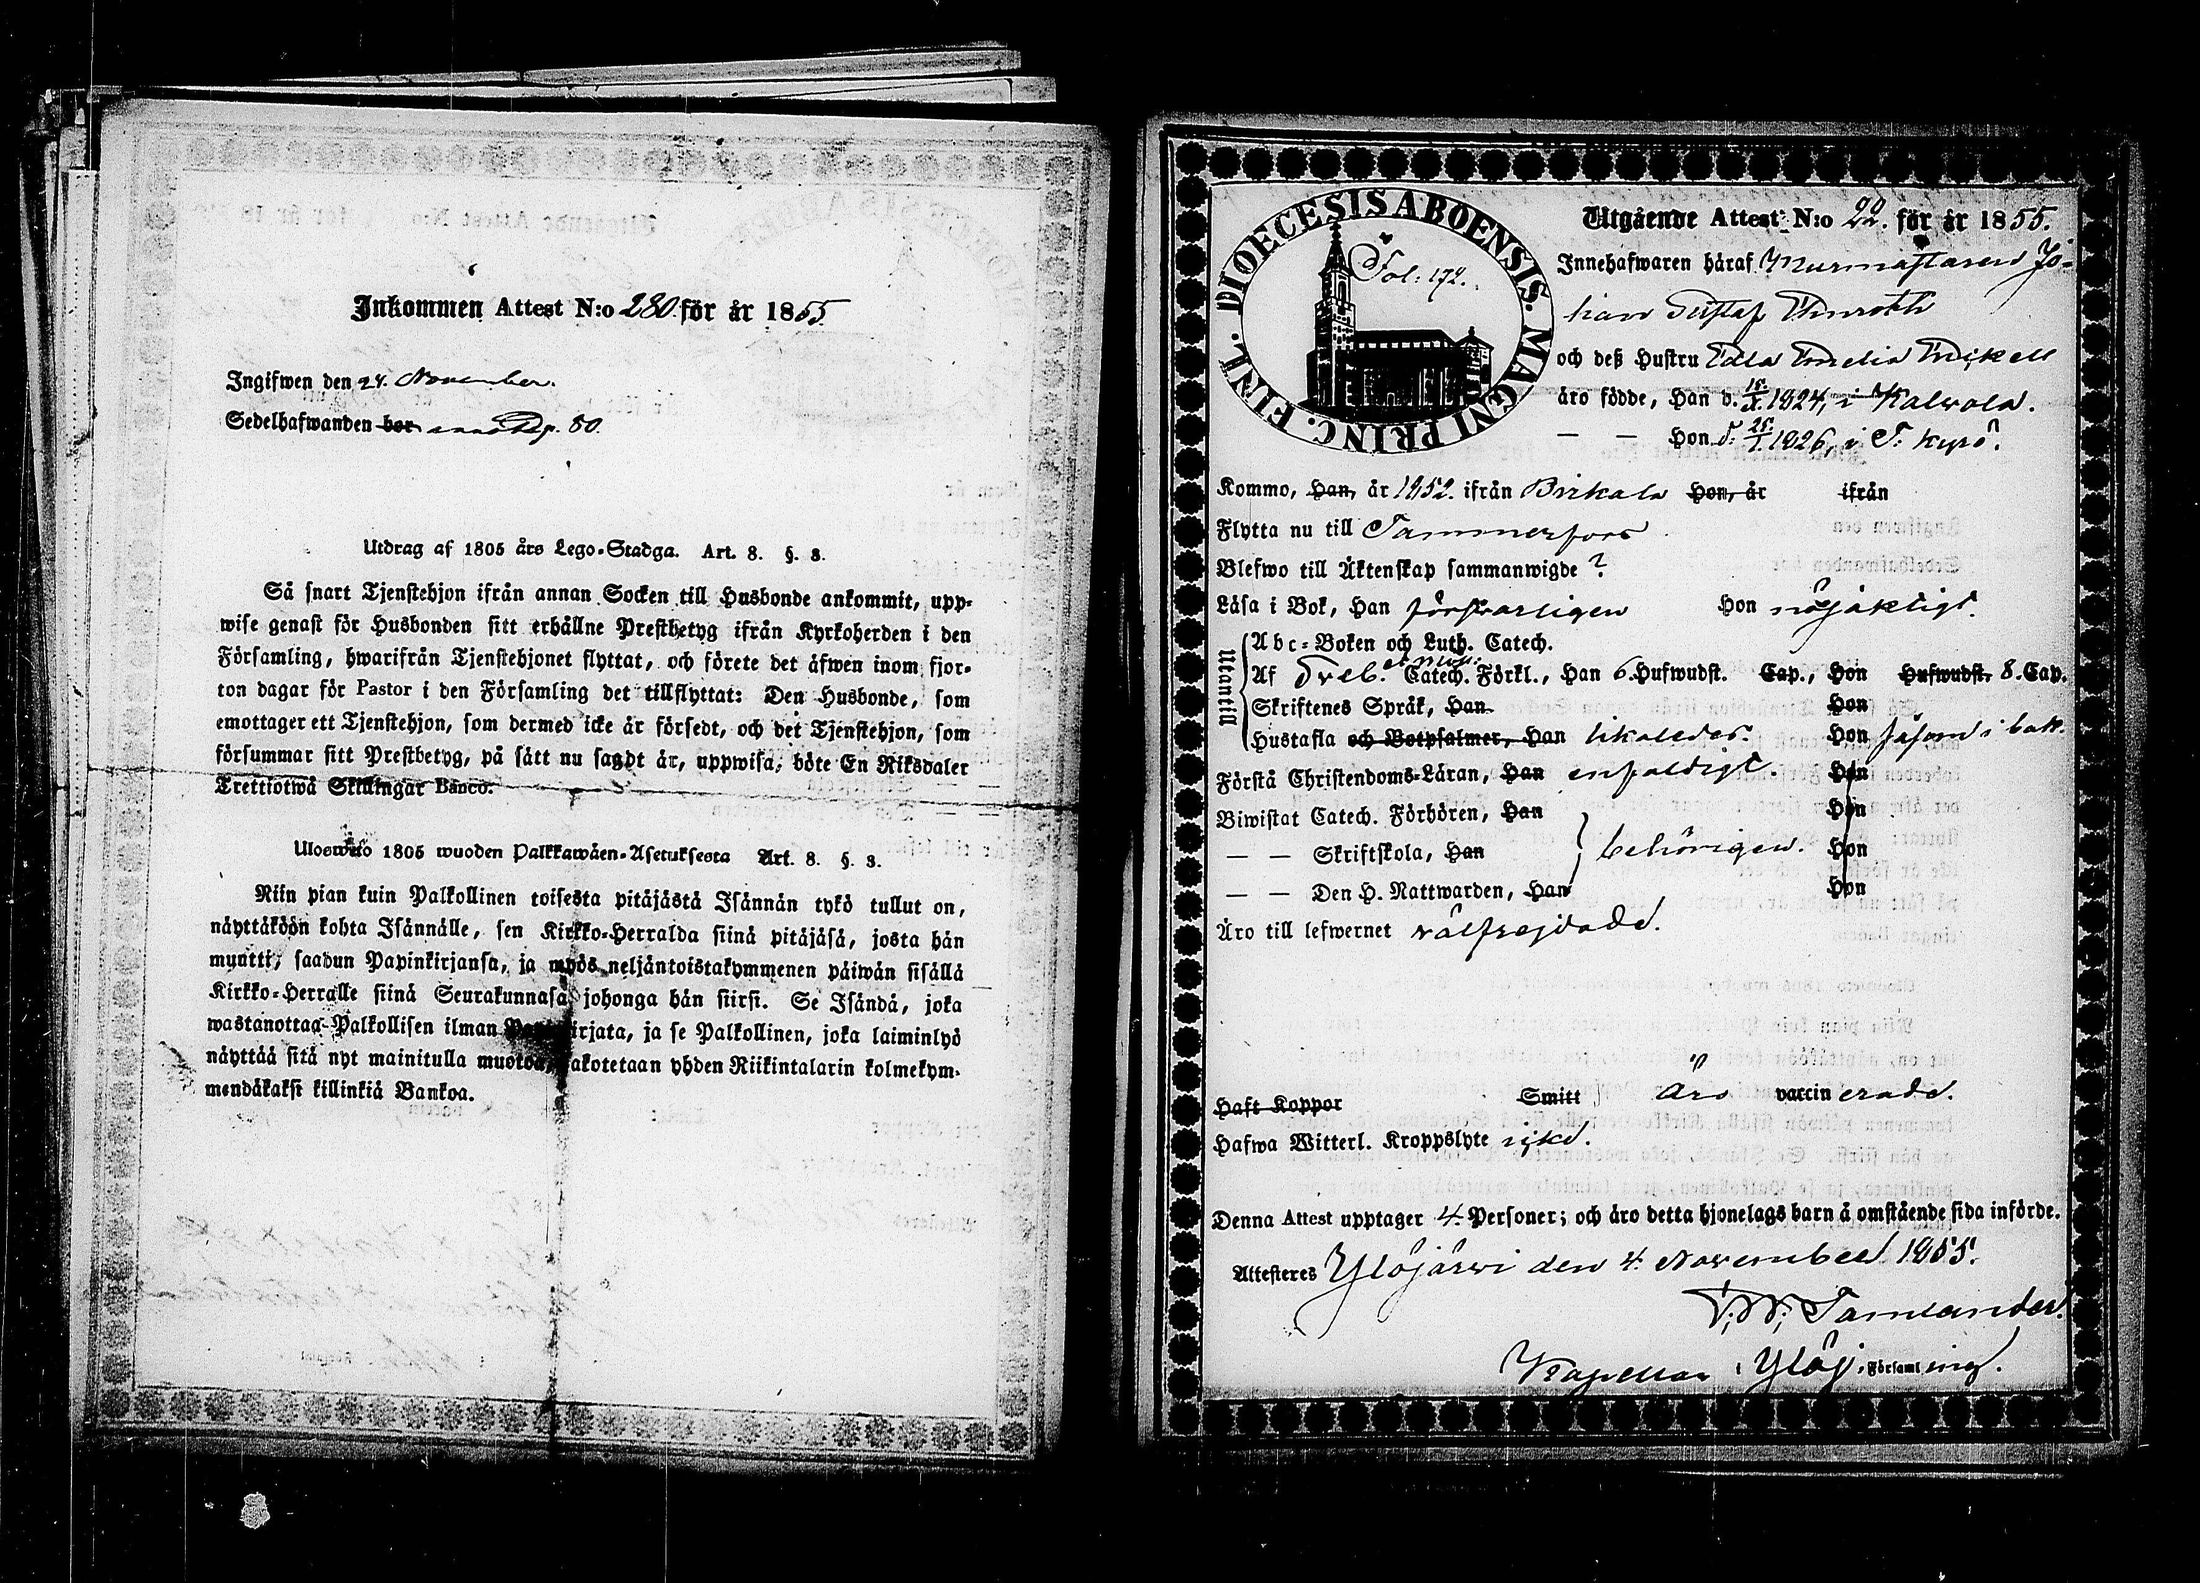 Inkommen Attest N:o 280 för år 1855
Ingifwen den 24. November.
Sedelhafwanden bor 80.
Utdrag af 1805 års Lego-Stadga. Art. 8. §. 3.
Så snart Tjenstehjon ifrån annan Socken till Husbonde ankommit, upp-
wise genast för Husbonden sitt erhållne Prestbetyg ifrån Kyrkoherden i den
Församling, hwarifrån Tjenstehjonet flyttat, och förete det äfwen inom fjor-
ton dagar för Pastor i den Församling det tillflyttat: Den Husbonde, som
emottager ett Tjenstehjon, som dermed icke är försedt, och det Tjenstehjon, som
försummar sitt Prestbetyg, på sätt nu sagdt är, uppwisa, böte En Riksdaler
Trettiotwå Skillingar Banco.
Uloswéto 1805 wuoden Palkkawäen-Asetuksesta Art. 8. §. 3.
Niin pian kuin Palkollinen toisesta pitäjästä Isännän tykö tullut on,
näyttäköön kohta Isännälle, sen Kirkko-Herralda siinä pitäjäsä, josta hän
muutti, saadun Papinkirjansa, ja myös neljäntoistakymmenen päiwän sisällä
Kirkko-Herralle siinä Seurakunnasa johonga hän siirsi. Se Isändä, joka
wastanottaa Palkollisen ilman Papinkirjata, ja se Palkollinen, joka laiminlyö
näyttää sitä nyt mainitulla muotoa, sakotetaan yhden Riikintalarin kolmekym-
mendäkaksi killinkiä Bankoa.
DIOECESIS ABOENSIS. MAGNI PRINC. FINL.
Fol: 172.
Utgående Attest N:o 22. för år 1855.
Innehafwaren häraf Murmästaren Jo-
han Gustaf Thuroth
och deß Hustru Edla Emelia Frickell
äro födde, Han d. 1824, i Kalvola.
— — Hon d. 25/1. 1826, i T. Kyro.
Kommo, Han, år 1852. ifrån Birkala Hon, år ifrån
Flytta nu till Tammerfors
Blefwo till Äktenskap sammanwigde ?
Läsa i Bok, Han försvarligen Hon nöjaktigt.
Utantill
Abc-Boken och Luth. Catech.
Af Treb. Catech. Förkl., Han 6. Hufwudst. Cap., Hon Hufwudst. 8. Cap.
Skriftenes Språk, Han Hon
Hustafla och Botpsalmer, Han likaledes. Hon såsom i bok.
Förstå Christendoms-Läran, Han enfaldigt. Hon
Biwistat Catech. Förhören, Han Hon
— — Skriftskola, Han behörigen. Hon
— — Den H. Nattwarden, Han Hon
Äro till lefwernet välfrejdade.
Haft Koppor Smitt Äro vaccinerade.
Hafwa Witterl. Kroppslyte icke.
Denna Attest upptager 4. Personer; och äro detta hjonelags barn å omstående sida införde.
Attesteras Ylöjärvi den 4. November 1855.
Tamlander.
Kapellan i Ylöj. Församling.